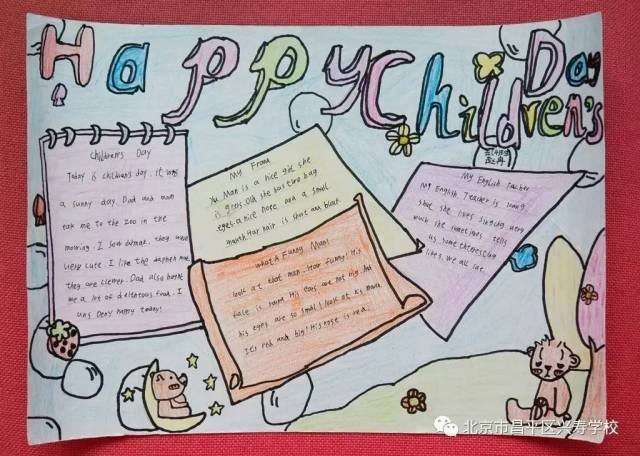 Happy Children's Day
Children's Day
Today is children's day. It was
a sunny day. Dad and mom
me to the zoo in the
I saw they were
very cute. I like the
they are clever. Dad also
me a lot of food. I
was very happy today!
My Friend
Man is a nice girl she
is years old she has two big
eyes. a nice nose and a small
mouth. Her hair is short and black
What A Funny Man!
look at that man. How funny! His
face is round His ears are not big. And
his eyes are so small! look at his mouth.
It's red and big! His nose is red.
My English Teacher
My English Teacher is young
she likes singing very
much she sometimes tells
us some interesting
We all
北京市昌平区兴寿学校